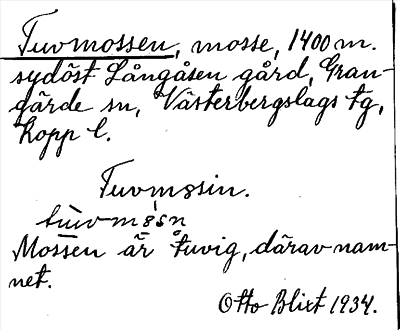 Tuvmossen, mosse, 1400 m.
sydöst Långåsen gård, Gran-
gärde sn, Västerbergslags tg,
Kopp l.
Tuvmosin.
tùvmosn
Mossen är tuvig, därav nam-
net.
Otto Blixt 1934.